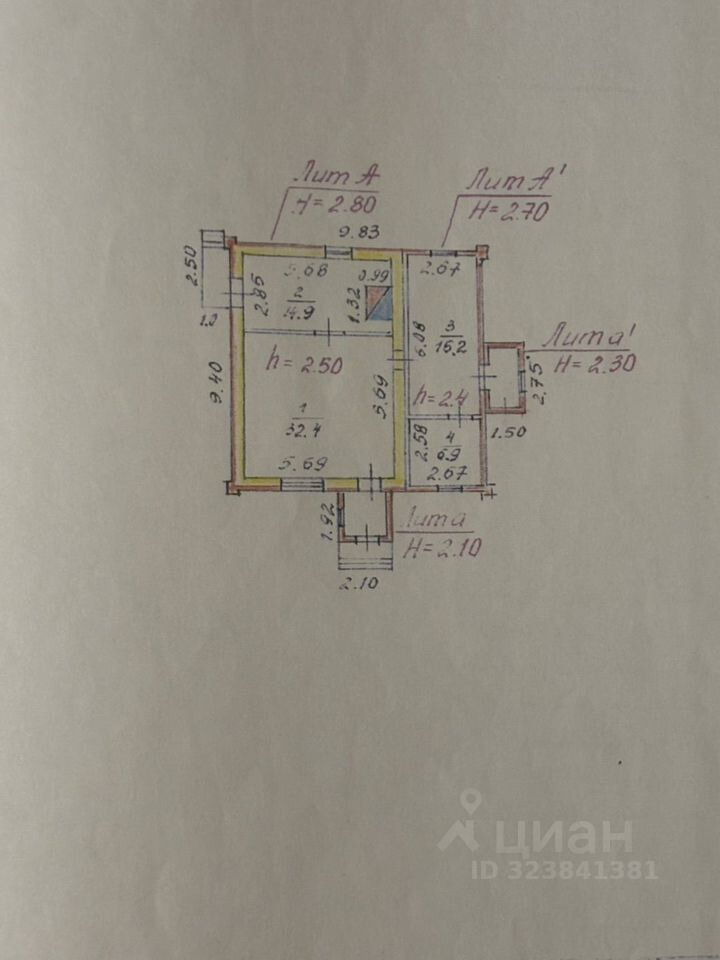 Лит А
H = 2.80
Лит А'
H = 2.70
9.83
2.50
5.68
0.99
2.67
2.85
2
14.9
1.32
1.0
6.08
3
16.2
Лит а'
H = 2.30
h = 2.50
2.75
9.40
5.69
h = 2.4
1
32.4
2.58
4
6.9
1.50
5.69
2.67
1.92
Лит а
H = 2.10
2.10
циан
ID 323841381